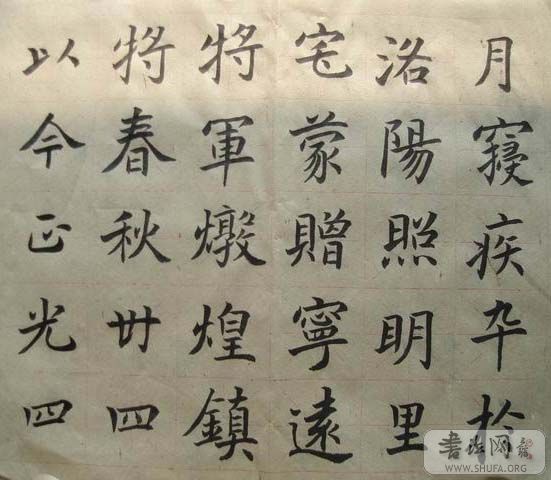 月寢疾卆於
洛陽照明里
宅蒙贈寧遠
將軍燉煌鎮
將春秋卅四
以今正光四
書法网
WWW.SHUFA.ORG